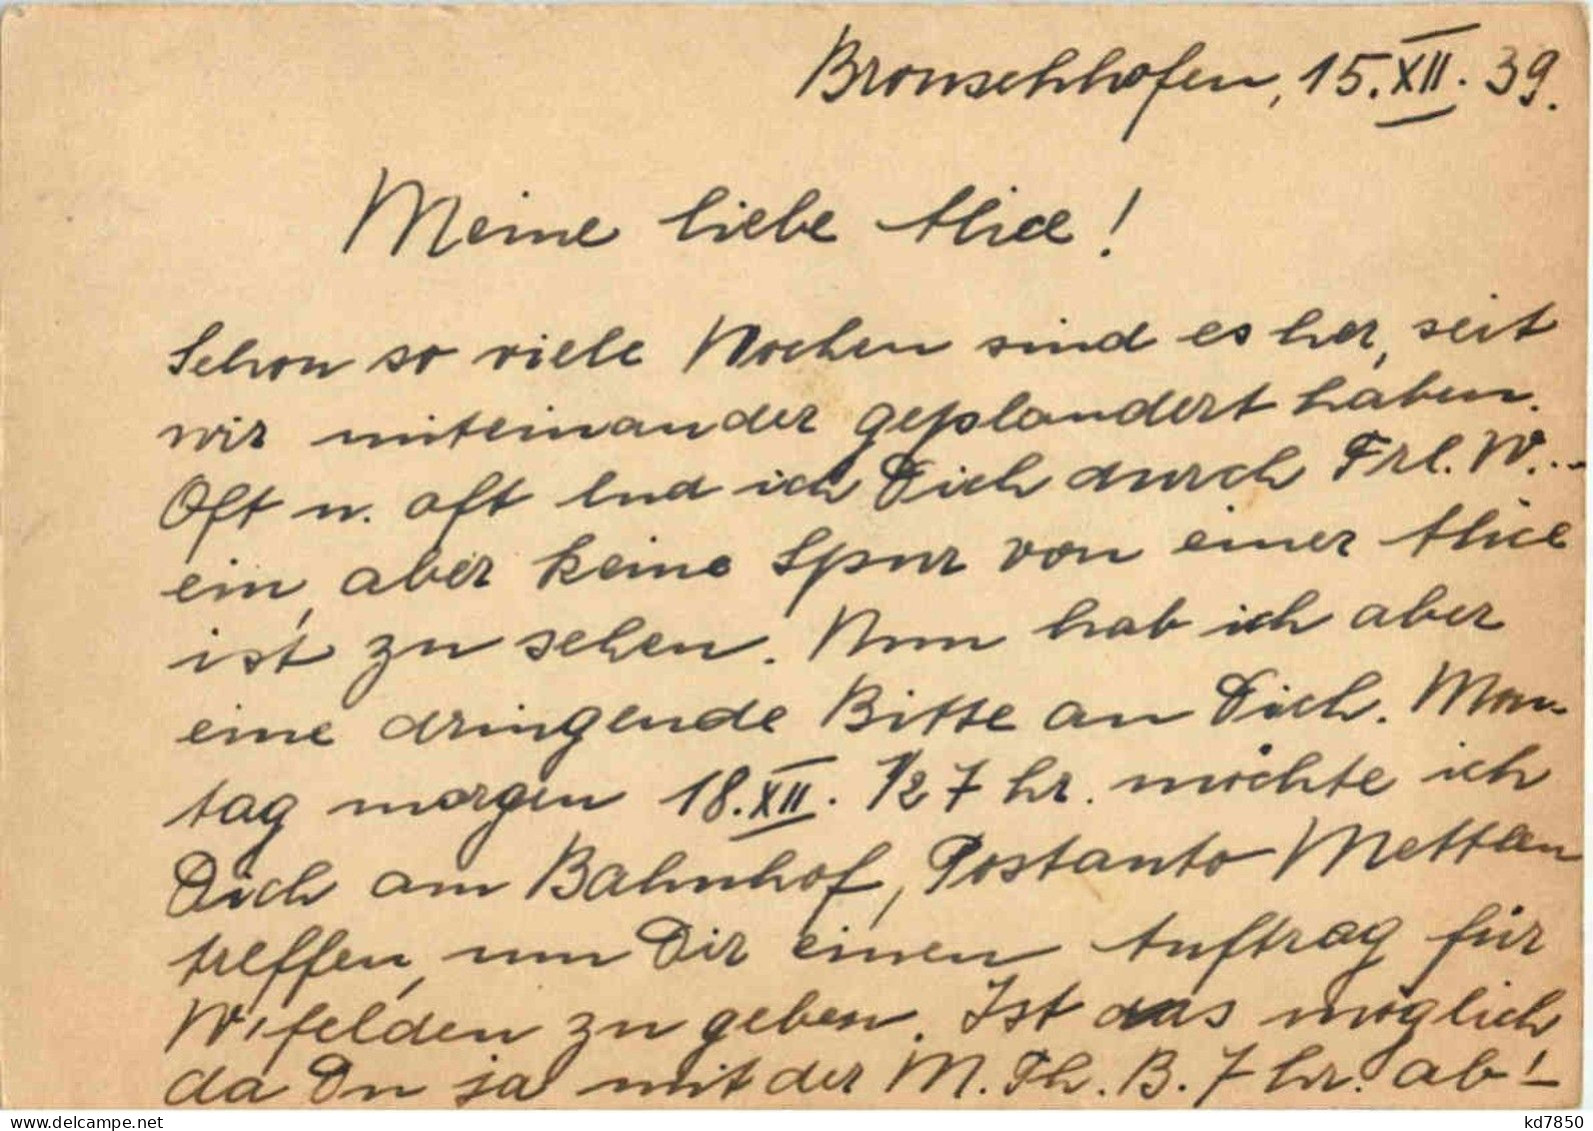 Bronschhofen, 15. XII. 39.
Meine liebe Alice!
Schon so viele Wochen sind es her, seit
wir miteinander geplaudert haben.
Oft u. oft lud ich Dich durch Frl. W...
ein, aber keine Spur von einer Alice
ist zu sehen. Nun hab ich aber
eine dringende Bitte an Dich. Mon-
tag morgen 18. XII. 1/2 7 hr. möchte ich
Dich am Bahnhof, Postauto Mettlen
treffen, um Dir einen Auftrag für
Wifelden zu geben. Ist das möglich,
da Du ja mit der M. Th. B. 7 hr. ab-
kd7850